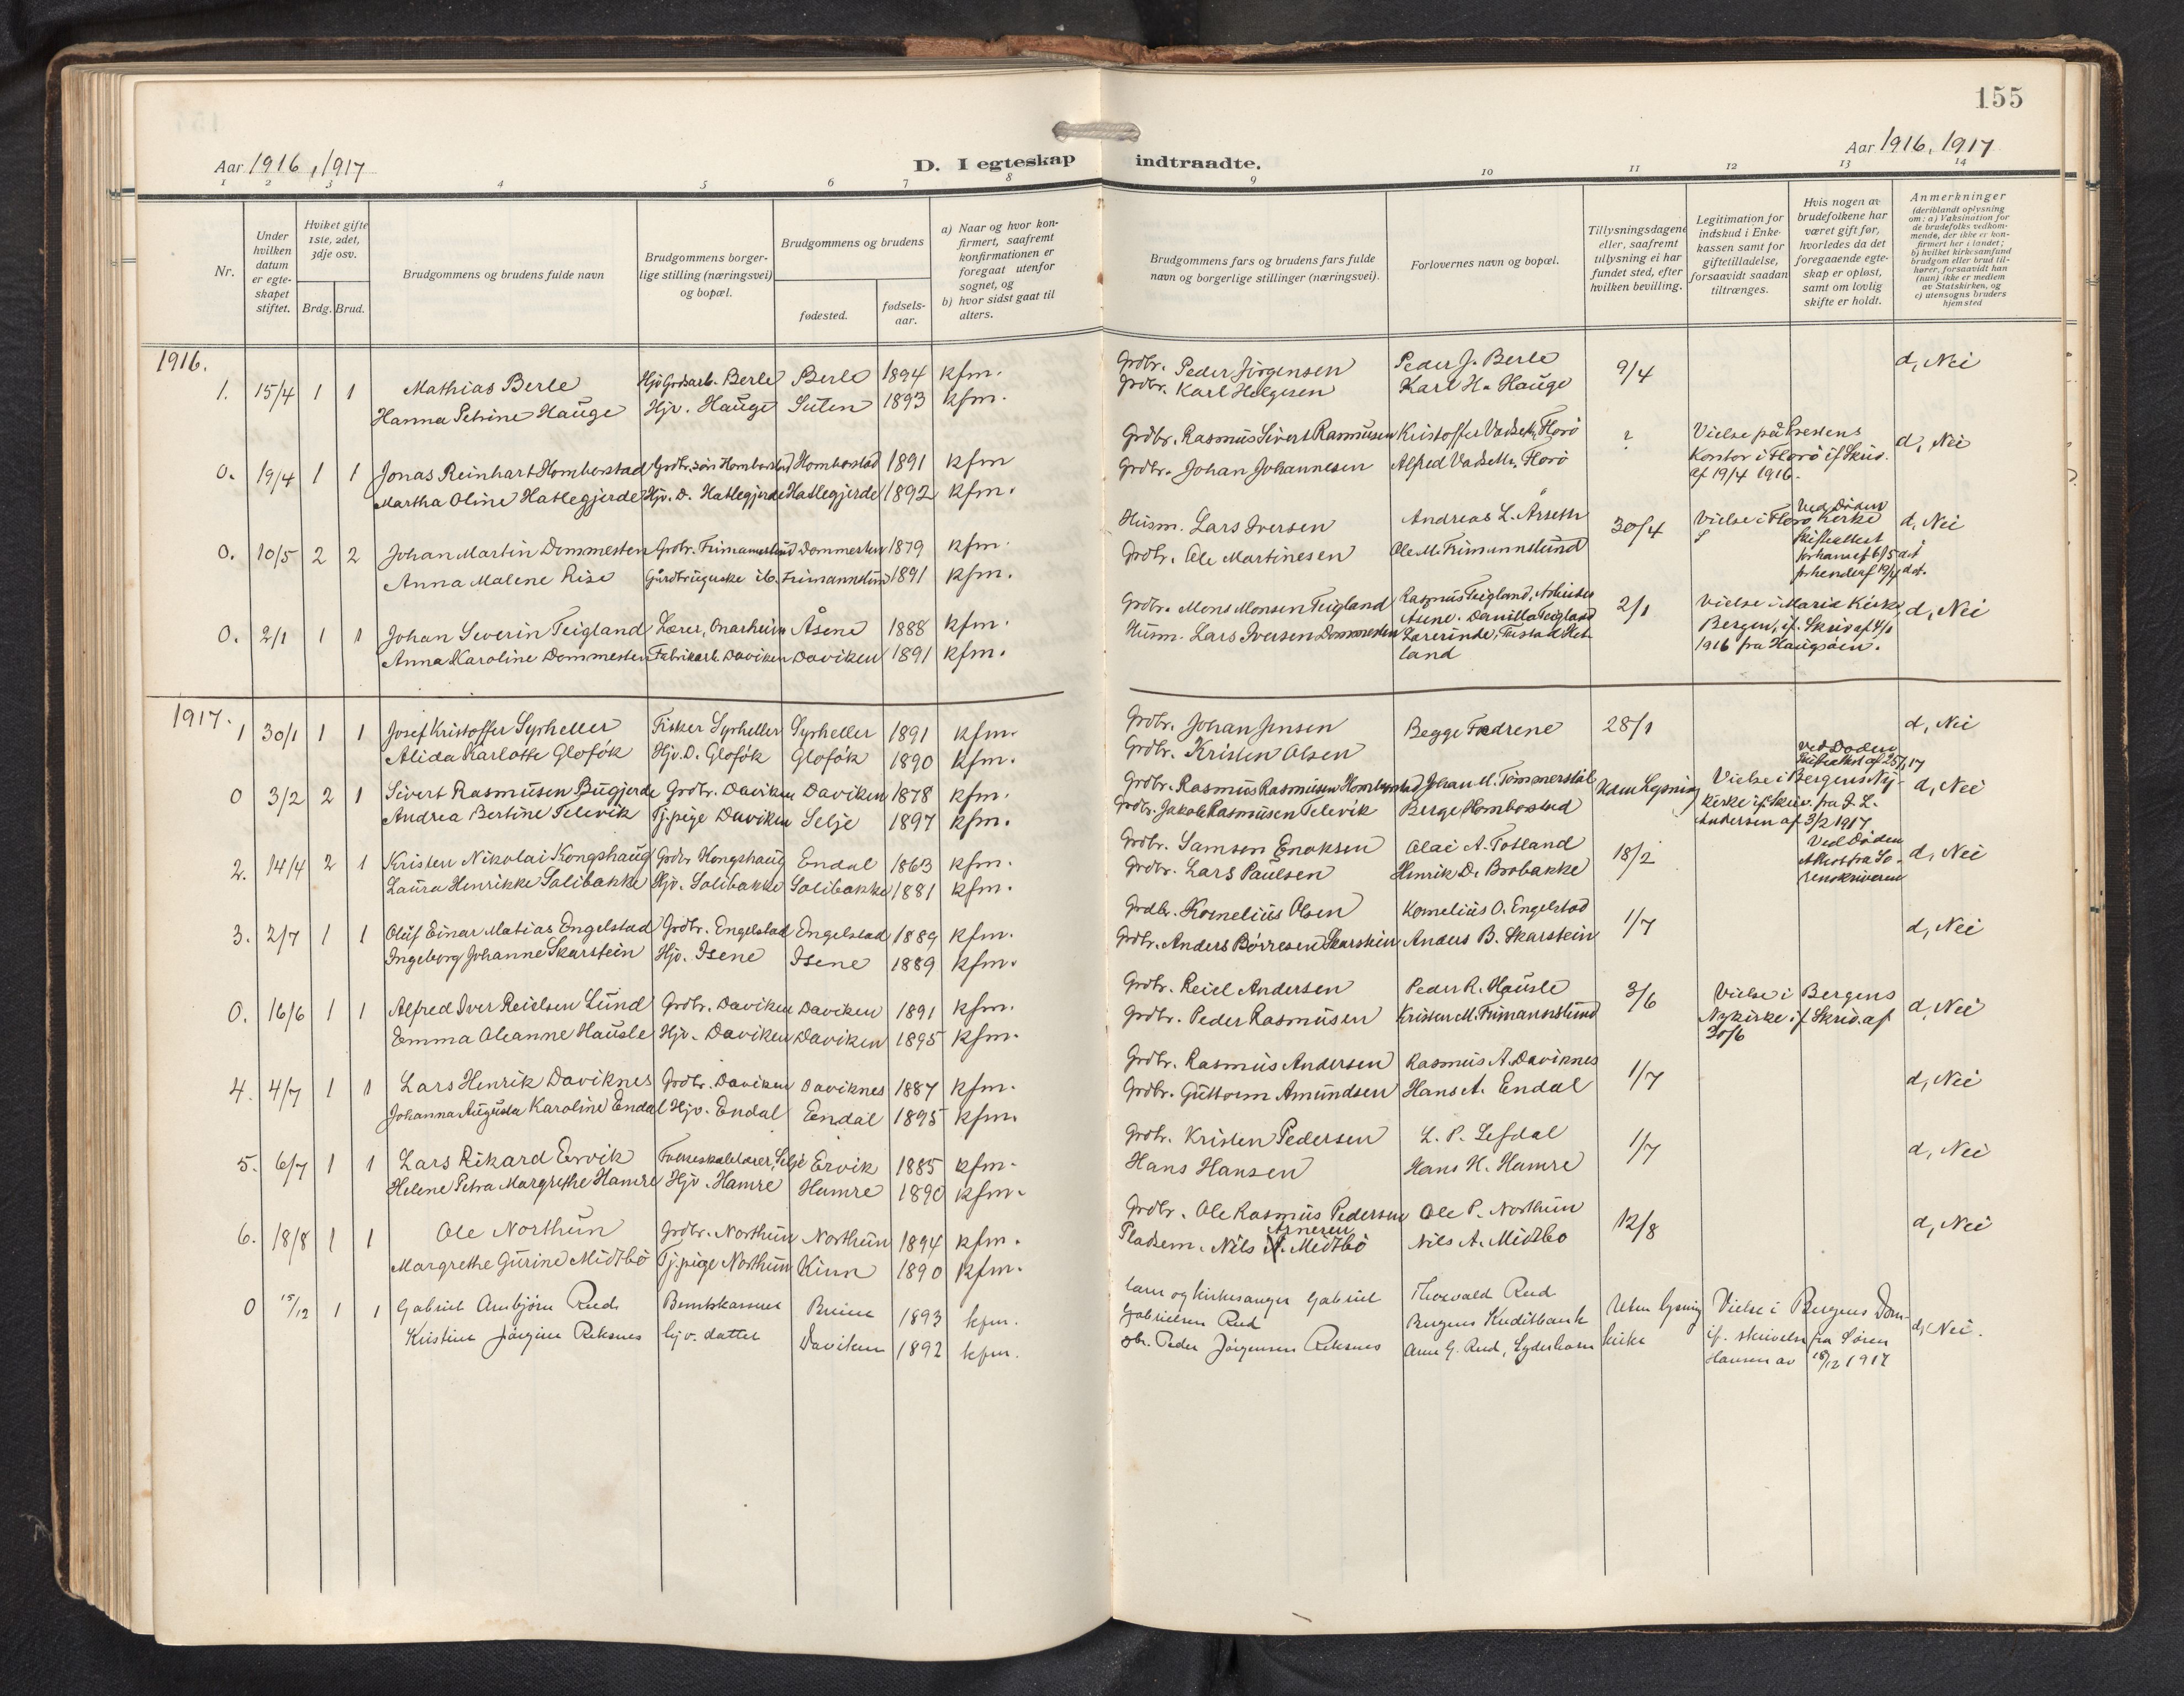 155
Aar 1916, 1917
D. I egteskap
indtraadte.
Aar 1916, 1917
1 2 3 4 5 6 7 8
9 10 11 12 13 14
Nr.
Under hvilken datum er egte-skapet stiftet.
Hvilket gifte 1ste, 2det, 3dje osv.
Brdg. Brud.
Brudgommens og brudens fulde navn
Brudgommens borger-lige stilling (næringsvei) og bopæl.
Brudgommens og brudens
fødested.
fødsels-aar.
a) Naar og hvor kon-firmert, saafremt konfirmationen er foregaat utenfor sognet, og
b) hvor sidst gaat til alters.
Brudgommens fars og brudens fars fulde navn og borgerlige stillinger (næringsvei).
Forlovernes navn og bopæl.
Tillysningsdagene eller, saafremt tillysning ei har fundet sted, efter hvilken bevilling.
Legitimation for indskud i Enke-kassen samt for giftetilladelse, forsaavidt saadan tiltrænges.
Hvis nogen av brudefolkene har været gift før, hvorledes da det foregaaende egte-skap er opløst, samt om lovlig skifte er holdt.
Anmerkninger (deriblandt oplysning om: a) Vaksination for de brudefolks vedkom-mende, der ikke er kon-firmert her i landet; b) hvilket kirkesamfund brudgom eller brud til-hører, forsaavidt han (hun) ikke er medlem av Statskirken, og c) utensogns bruders hjemsted
1916.
1. 15/4 1 1 Mathias Berle Hj. Grdarb. Berle Berle 1894 kfm. Grdbr. Peder Jörgensen Peder J. Berle 9/4 d, Nei
Hanna Petrine Hauge Hjv. Hauge Sulen 1893 kfm. Grdbr. Karl Helgesen Karl H. Hauge
0. 19/4 1 1 Jonas Reinhart Homborstad Grdbr.sön Hombostad Hombostad 1891 kfm Grdbr. Rasmus Sivert Rasmusen Kristoffer Vadseth, Florö ? Vielse på Prestens d, Nei
Martha Oline Hatlegjerde Hjv. D. Hatlegjerde Hatlegjerde 1892 kfm. Grdbr. Johan Johannesen Alfred Vadseth, Florö Kontor i Florö if Skriv.
af 19/4 1916.
0. 10/5 2 2 Johan Martin Dommesten Grdbr. Frimannslund Dommesten 1879 kfm. Husm. Lars Iversen Andreas L. Årseth 30/4 Vielse i Florö Kirke Ved Döden d, Nei
Anna Malene Rise Gårdbrugerske ib. Frimannslund 1891 kfm. Grdbr. Ole Martinesen Ole M. Frimannslund Skifteattest
for ham af 6/5 d.å.
for hende af 19/4 d.å.
0. 2/1 1 1 Johan Severin Teigland Lærer, Onarheim Åsene 1888 kfm. Grdbr. Mons Monsen Teigland Rasmus Teigland, 2/1 Vielse i Maria Kirke, d, Nei
Anna Karoline Dommesten Fabrikarb. Daviken Daviken 1891 kfm. Husm. Lars Iversen Dommesten Åsene. Teigland Bergen, if. Skriv af 4/1
Lærerinde, 1916 fra Haugsöen.
land
1917.
1 30/1 1 1 Josef Kristoffer Gyrheller Fisker Gyrheller Gyrheller 1891 kfm. Grdbr. Johan Jensen Begge Fædrene 28/1 d, Nei
Alida Karlotte Glofók Hjv. D. Glofók Glofók 1890 kfm. Grdbr. Kristen Olsen
0 3/2 2 1 Sivert Rasmusen Bugjerde Grdbr. Daviken Daviken 1878 kfm. Grdbr. Rasmus Rasmusen Hombostad Johan M. Tömmerstöl Uden Lysning Vielse i Bergens Ny- Ved Döden Skifteattest af 25/1 17 d, Nei
Andrea Bertine Televik Tj.pige Daviken Selje 1897 kfm. Grdbr. Jakob Rasmusen Televik Berge Hombostad Kirke if Skriv. fra J. L.
Andersen af 3/2 1917
2. 14/4 2 1 Kristen Nikolai Kongshaug Grdbr Kongshaug Endal 1863 kfm. Grdbr. Samson Enoksen Olai A. Totland 18/2 Ved Döden d, Nei
Laura Henrikke Solibakke Hjv. Solibakke Solibakke 1881 kfm. Grdbr. Lars Paulsen Henrik D. Brobakke Attest fra So-
renskriveren
3. 2/7 1 1 Oluf Einar Matias Engelstad Grdbr. Engelstad Engelstad 1889 kfm. Grdbr. Kornelius Olsen Kornelius O. Engelstad 1/7 d, Nei
Ingeborg Johanne Skarstein Hjv. Isene Isene 1889 kfm. Grdbr. Anders Börresen Skarstein Anders B. Skarstein
0. 16/6 1 1 Alfred Iver Reielsen Lund Grdbr. Daviken Daviken 1891 kfm. Grdbr. Reiel Andersen Peder R. Hausle 3/6 Vielse i Bergens d, Nei
Emma Oleanne Hausle Hjv. Daviken Daviken 1895 kfm. Grdbr. Peder Rasmusen Kristen M. Frimannslund Nykirke if Skriv. af
30/6
4. 4/7 1 1 Lars Henrik Daviknes Grdbr. Daviken Daviknes 1887 kfm. Grdbr. Rasmus Andersen Rasmus A. Daviknes 1/7 d, Nei
Johanna Augusta Karoline Endal Hjv. Endal Endal 1895 kfm. Grdbr. Guttorm Amundsen Hans A. Endal
5. 6/7 1 1 Lars Rikard Ervik Folkeskolelærer, Selje Ervik 1885 kfm. Grdbr. Kristen Pedersen L. P. Lefdal 1/7 d, Nei
Helene Petra Margrethe Hamre Hjv. Hamre Hamre 1890 kfm. Hans Hansen Hans H. Hamre
6. 18/8 1 1 Ole Northun Grdbr. Northun Northun 1894 kfm. Grdbr. Ole Rasmus Pedersen Ole P. Northun 12/8 d, Nei
Margrethe Gurine Midtbö Tj.pige Northun Kinn 1890 kfm. Pladsem. Nils Arnesen Midtbö Nils A. Midtbö
0 15/12 1 1 Gabriel Arnbjörn Rud Bankkasserer 1893 kfm. Lærer og kirkesanger Gabriel Thorvald Rud Uten lysning Vielse i Bergens Dom- d, Nei.
Kristine Jörgine Reksnes hjv. datter Daviken 1892 kfm. Gabrielsen Rud Bergens Kreditbank kirke if. skrivelse fra Sören
Gbr. Peder Jörgensen Reksnes Arne G. Rud, Hansen av 18/12 1917